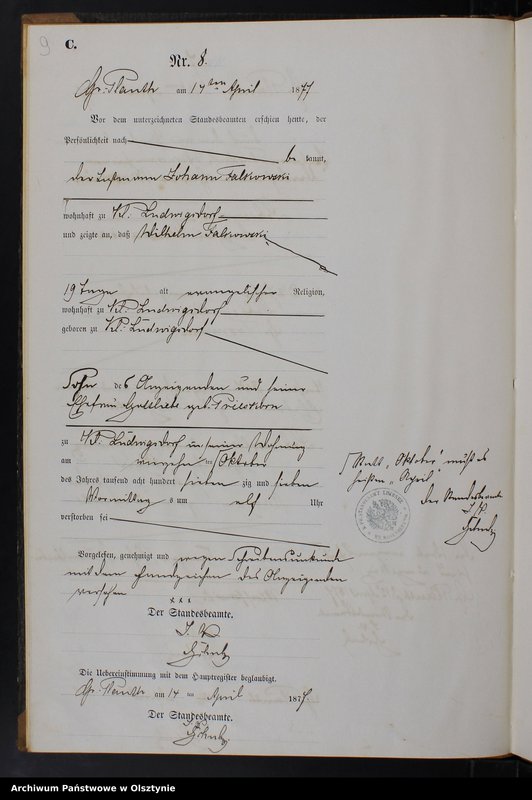 9
C.
Nr. 8.
Gr. Plauth am 14ten April 1877
Vor dem unterzeichneten Standesbeamten erschien heute, der
Persönlichkeit nach
be kannt,
der Instmann Johann Falkowski
wohnhaft zu Kl. Ludwigsdorf
und zeigte an, daß Wilhelm Falkowski,
19 Tage alt evangelischer Religion,
wohnhaft zu Kl. Ludwigsdorf
geboren zu Kl. Ludwigsdorf
Sohn des Anzeigenden und seiner
Ehefrau Gottliebe geb.
zu Kl. Ludwigsdorf in seiner Wohnung
am vierzehn ten Oktober
des Jahres tausend acht hundert sieben zig und sieben
Vormittag s um elf Uhr
verstorben sei
Vorgelesen, genehmigt und wegen Schreibensunkunde
mit dem Handzeichen des Anzeigenden
versehen
x x x
Der Standesbeamte.
I. V.
Die Uebereinstimmung mit dem Hauptregister beglaubigt.
Gr. Plauth am 14 ten April 1877.
Der Standesbeamte.
Statt „Oktober" muß es
heißen „April"
der Standesbeamte
I. V.
Archiwum Państwowe w Olsztynie